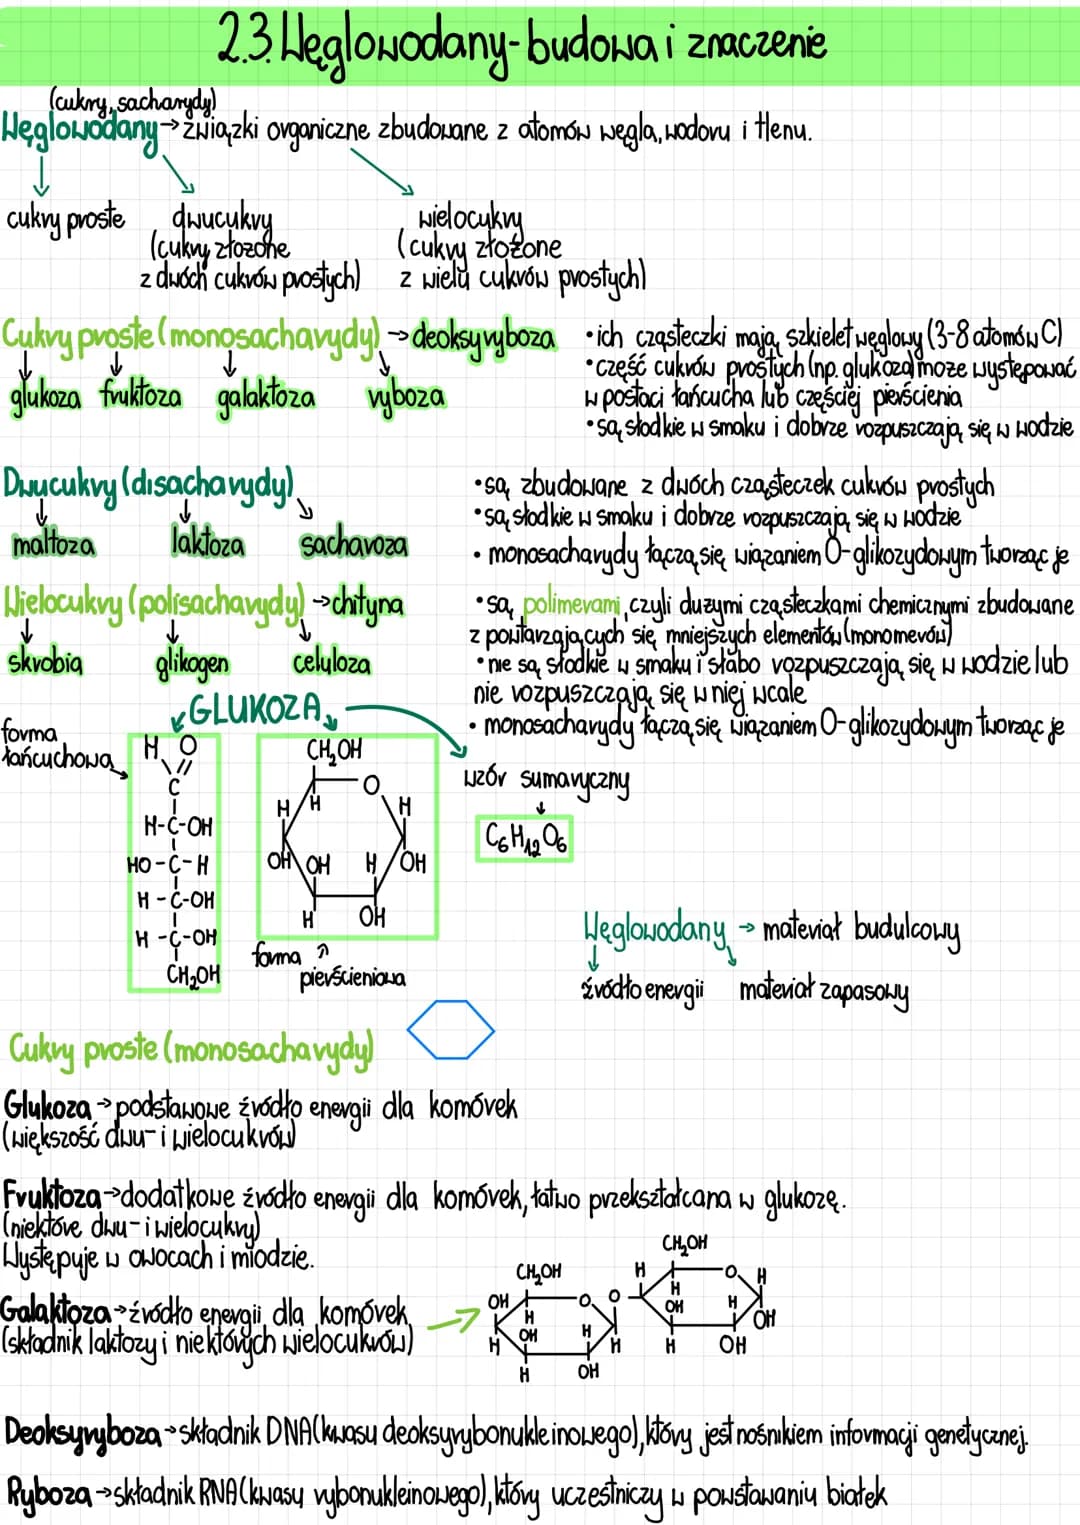 2.3. Węglowodany-budowa i znaczenie
(cukry, sacharydy)
Węglowodany → związki organiczne zbudowane z atomów węgla, wodoru i tlenu.
cukry proste dwucukry wielocukry
(cukry złożone (cukry złożone
z dwóch cukrów prostych) z wielu cukrów prostych)
Cukry proste (monosacharydy) → deoksyryboza
glukoza fruktoza galaktoza ryboza
• ich cząsteczki mają szkielet węglowy (3-8 atomów C)
• część cukrów prostych (np. glukoza) może występować
w postaci łańcucha lub częściej pierścienia
• są słodkie w smaku i dobrze rozpuszczają się w wodzie
Dwucukry (disacharydy)
maltoza laktoza sacharoza
• są zbudowane z dwóch cząsteczek cukrów prostych
• są słodkie w smaku i dobrze rozpuszczają się w wodzie
• monosacharydy łączą się wiązaniem O-glikozydowym tworząc je
Wielocukry (polisacharydy) → chityna
skrobia glikogen celuloza
• są polimerami, czyli dużymi cząsteczkami chemicznymi zbudowane
z powtarzających się mniejszych elementów (monomerów)
• nie są słodkie w smaku i słabo rozpuszczają się w wodzie lub
nie rozpuszczają się w niej wcale
• monosacharydy łączą się wiązaniem O-glikozydowym tworząc je
GLUKOZA
forma
łańcuchowa
H O
C
H-C-OH
HO-C-H
H-C-OH
H-C-OH
CH₂OH
CH₂OH
O
H H H
OH OH H OH
H OH
forma
pierścieniowa
wzór sumaryczny
C₆H₁₂O₆
Węglowodany → materiał budulcowy
źródło energii materiał zapasowy
Cukry proste (monosacharydy)
Glukoza → podstawowe źródło energii dla komórek
(większość dwu- i wielocukrów)
Fruktoza → dodatkowe źródło energii dla komórek, łatwo przekształcana w glukozę.
(niektóre dwu- i wielocukry)
Występuje w owocach i miodzie.
Galaktoza → źródło energii dla komórek
(składnik laktozy i niektórych wielocukrów)
CH₂OH
OH O O
H
OH H
H H
H OH
CH₂OH
H O H
H
OH H OH
H OH
Deoksyryboza → składnik DNA (kwasu deoksyrybonukleinowego), który jest nośnikiem informacji genetycznej.
Ryboza → składnik RNA (kwasu rybonukleinowego), który uczestniczy w powstawaniu białek